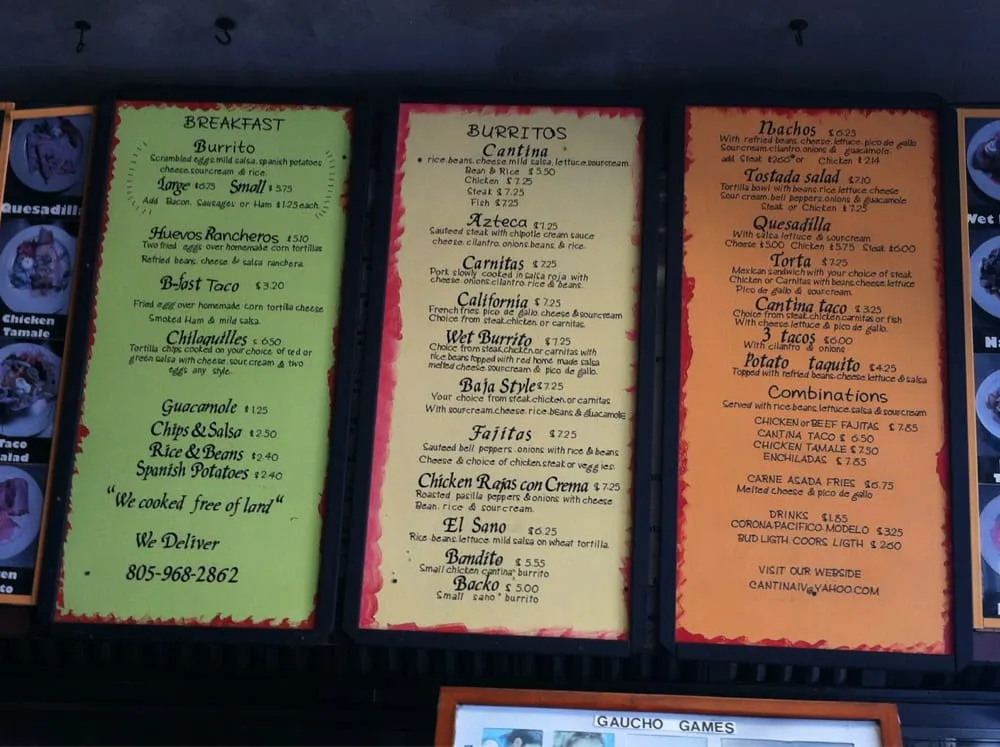 Quesadilla
Chicken
Tamale
Taco
alad
BREAKFAST
Burrito
Scrambled eggs, mild salsa, spanish potatoes
cheese, sourcream & rice.
Large $6.75 Small $3.75
Add Bacon, Sausages or Ham $1.25 each.
Huevos Rancheros $5.10
Two fried eggs over homemade corn tortillas
Refried beans, cheese & salsa ranchera.
B-fast Taco $3.20
Fried egg over homemade corn tortilla cheese
Smoked Ham & mild salsa.
Chilaquilles $6.50
Tortilla chips cooked on your choice of red or
green salsa with cheese, sour cream & two
eggs any style.
Guacamole $1.25
Chips & Salsa $2.50
Rice & Beans $2.40
Spanish Potatoes $2.40
"We cooked free of land"
We Deliver
805-968-2862
BURRITOS
Cantina
rice, beans, cheese, mild salsa, lettuce, sourcream.
Bean & Rice $5.50
Chicken $7.25
Steak $7.25
Fish $7.25
Azteca $7.25
Sauteed steak with chipotle cream sauce
cheese, cilantro, onions, beans, & rice.
Carnitas $7.25
Pork slowly cooked in salsa roja with
cheese, onions, cilantro, rice & beans.
California $7.25
French fries, pico de gallo, cheese & sourcream
Choice from steak, chicken or carnitas.
Wet Burrito $7.25
Choice from steak, chicken or carnitas with
rice, beans topped with red home made salsa
melted cheese, sourcream & pico de gallo.
Baja Style $7.25
Your choice from steak, chicken, or carnitas
With sourcream, cheese, rice, beans & guacamole
Fajitas $7.25
Sauteed bell peppers, onions with rice & beans
Cheese & choice of chicken, steak or veggies.
Chicken Rajas con Crema $7.25
Roasted pasilla peppers & onions with cheese
Bean, rice & sour cream.
El Sano $6.25
Rice, beans, lettuce, mild salsa on wheat tortilla.
Bandito $5.55
Small chicken cantina" burrito
Backo $5.00
Small sano" burrito
Nachos $6.25
With refried beans, cheese, lettuce, pico de gallo
Sourcream, cilantro, onions & guacamole.
add Steak $2.60 or Chicken $2.14
Tostada salad $7.10
Tortilla bowl with beans, rice, lettuce, cheese
Sour cream, bell peppers, onions & guacamole
Steak or Chicken $7.25
Quesadilla
With salsa, lettuce & sourcream
Cheese $5.00 Chicken $5.75 Steak $6.00
Torta $7.25
Mexican sandwich with your choice of steak
Chicken or Carnitas with beans, cheese, lettuce
Pico de gallo & sourcream.
Cantina taco $3.25
Choice from steak, chicken, carnitas or fish
With cheese, lettuce & pico de gallo.
3 tacos $6.00
With cilantro & onions
Potato taquito $4.25
Topped with refried beans, cheese, lettuce & salsa
Combinations
Served with rice, beans, lettuce, salsa & sourcream
CHICKEN or BEEF FAJITAS $7.85
CANTINA TACO $6.50
CHICKEN TAMALE $7.50
ENCHILADAS $7.85
CARNE ASADA FRIES $6.75
Melted cheese & pico de gallo
DRINKS $1.85
CORONA, PACIFICO, MODELO $3.25
BUD LIGTH, COORS LIGTH $2.60
VISIT OUR WEBSIDE
CANTINAIV@YAHOO.COM
Wet
GAUCHO GAMES